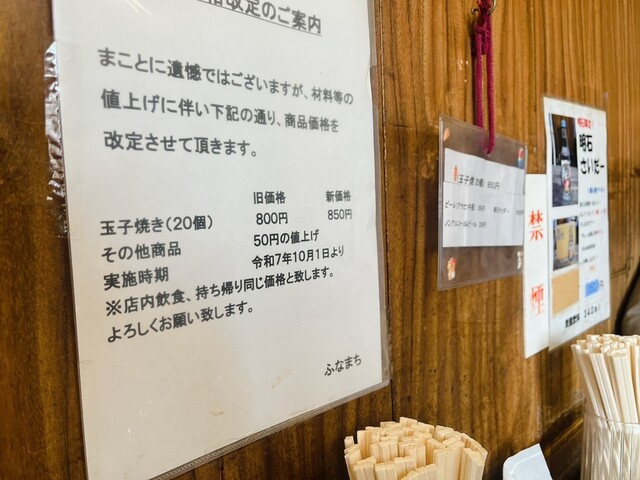 格改定のご案内
まことに遺憾ではございますが、材料等の
値上げに伴い下記の通り、商品価格を
改定させて頂きます。
旧価格 新価格
玉子焼き(20個) 800円 850円
その他商品 50円の値上げ
実施時期 令和7年10月1日より
※店内飲食、持ち帰り同じ価格と致します。
よろしくお願い致します。
ふなまち
玉子焼 20個 850円
ノンアルコールビール
禁煙
明石
さいだー